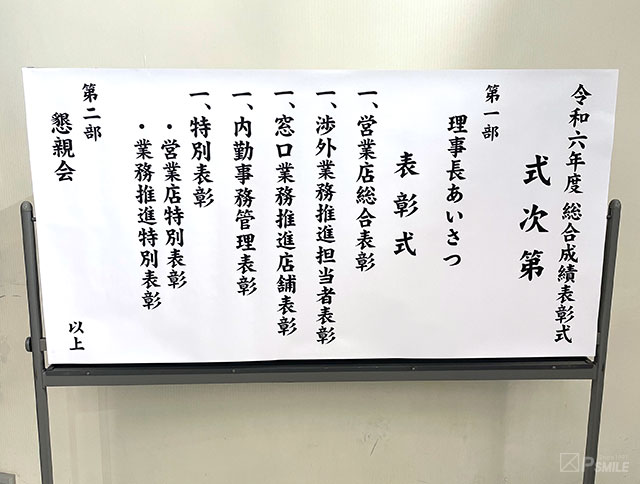 令和六年度 総合成績表彰式
式次第
第一部
理事長あいさつ
表彰式
一、営業店総合表彰
一、渉外業務推進担当者表彰
一、窓口業務推進店舗表彰
一、内勤事務管理表彰
一、特別表彰
・営業店特別表彰
・業務推進特別表彰
第二部
懇親会
以上
PSMILE